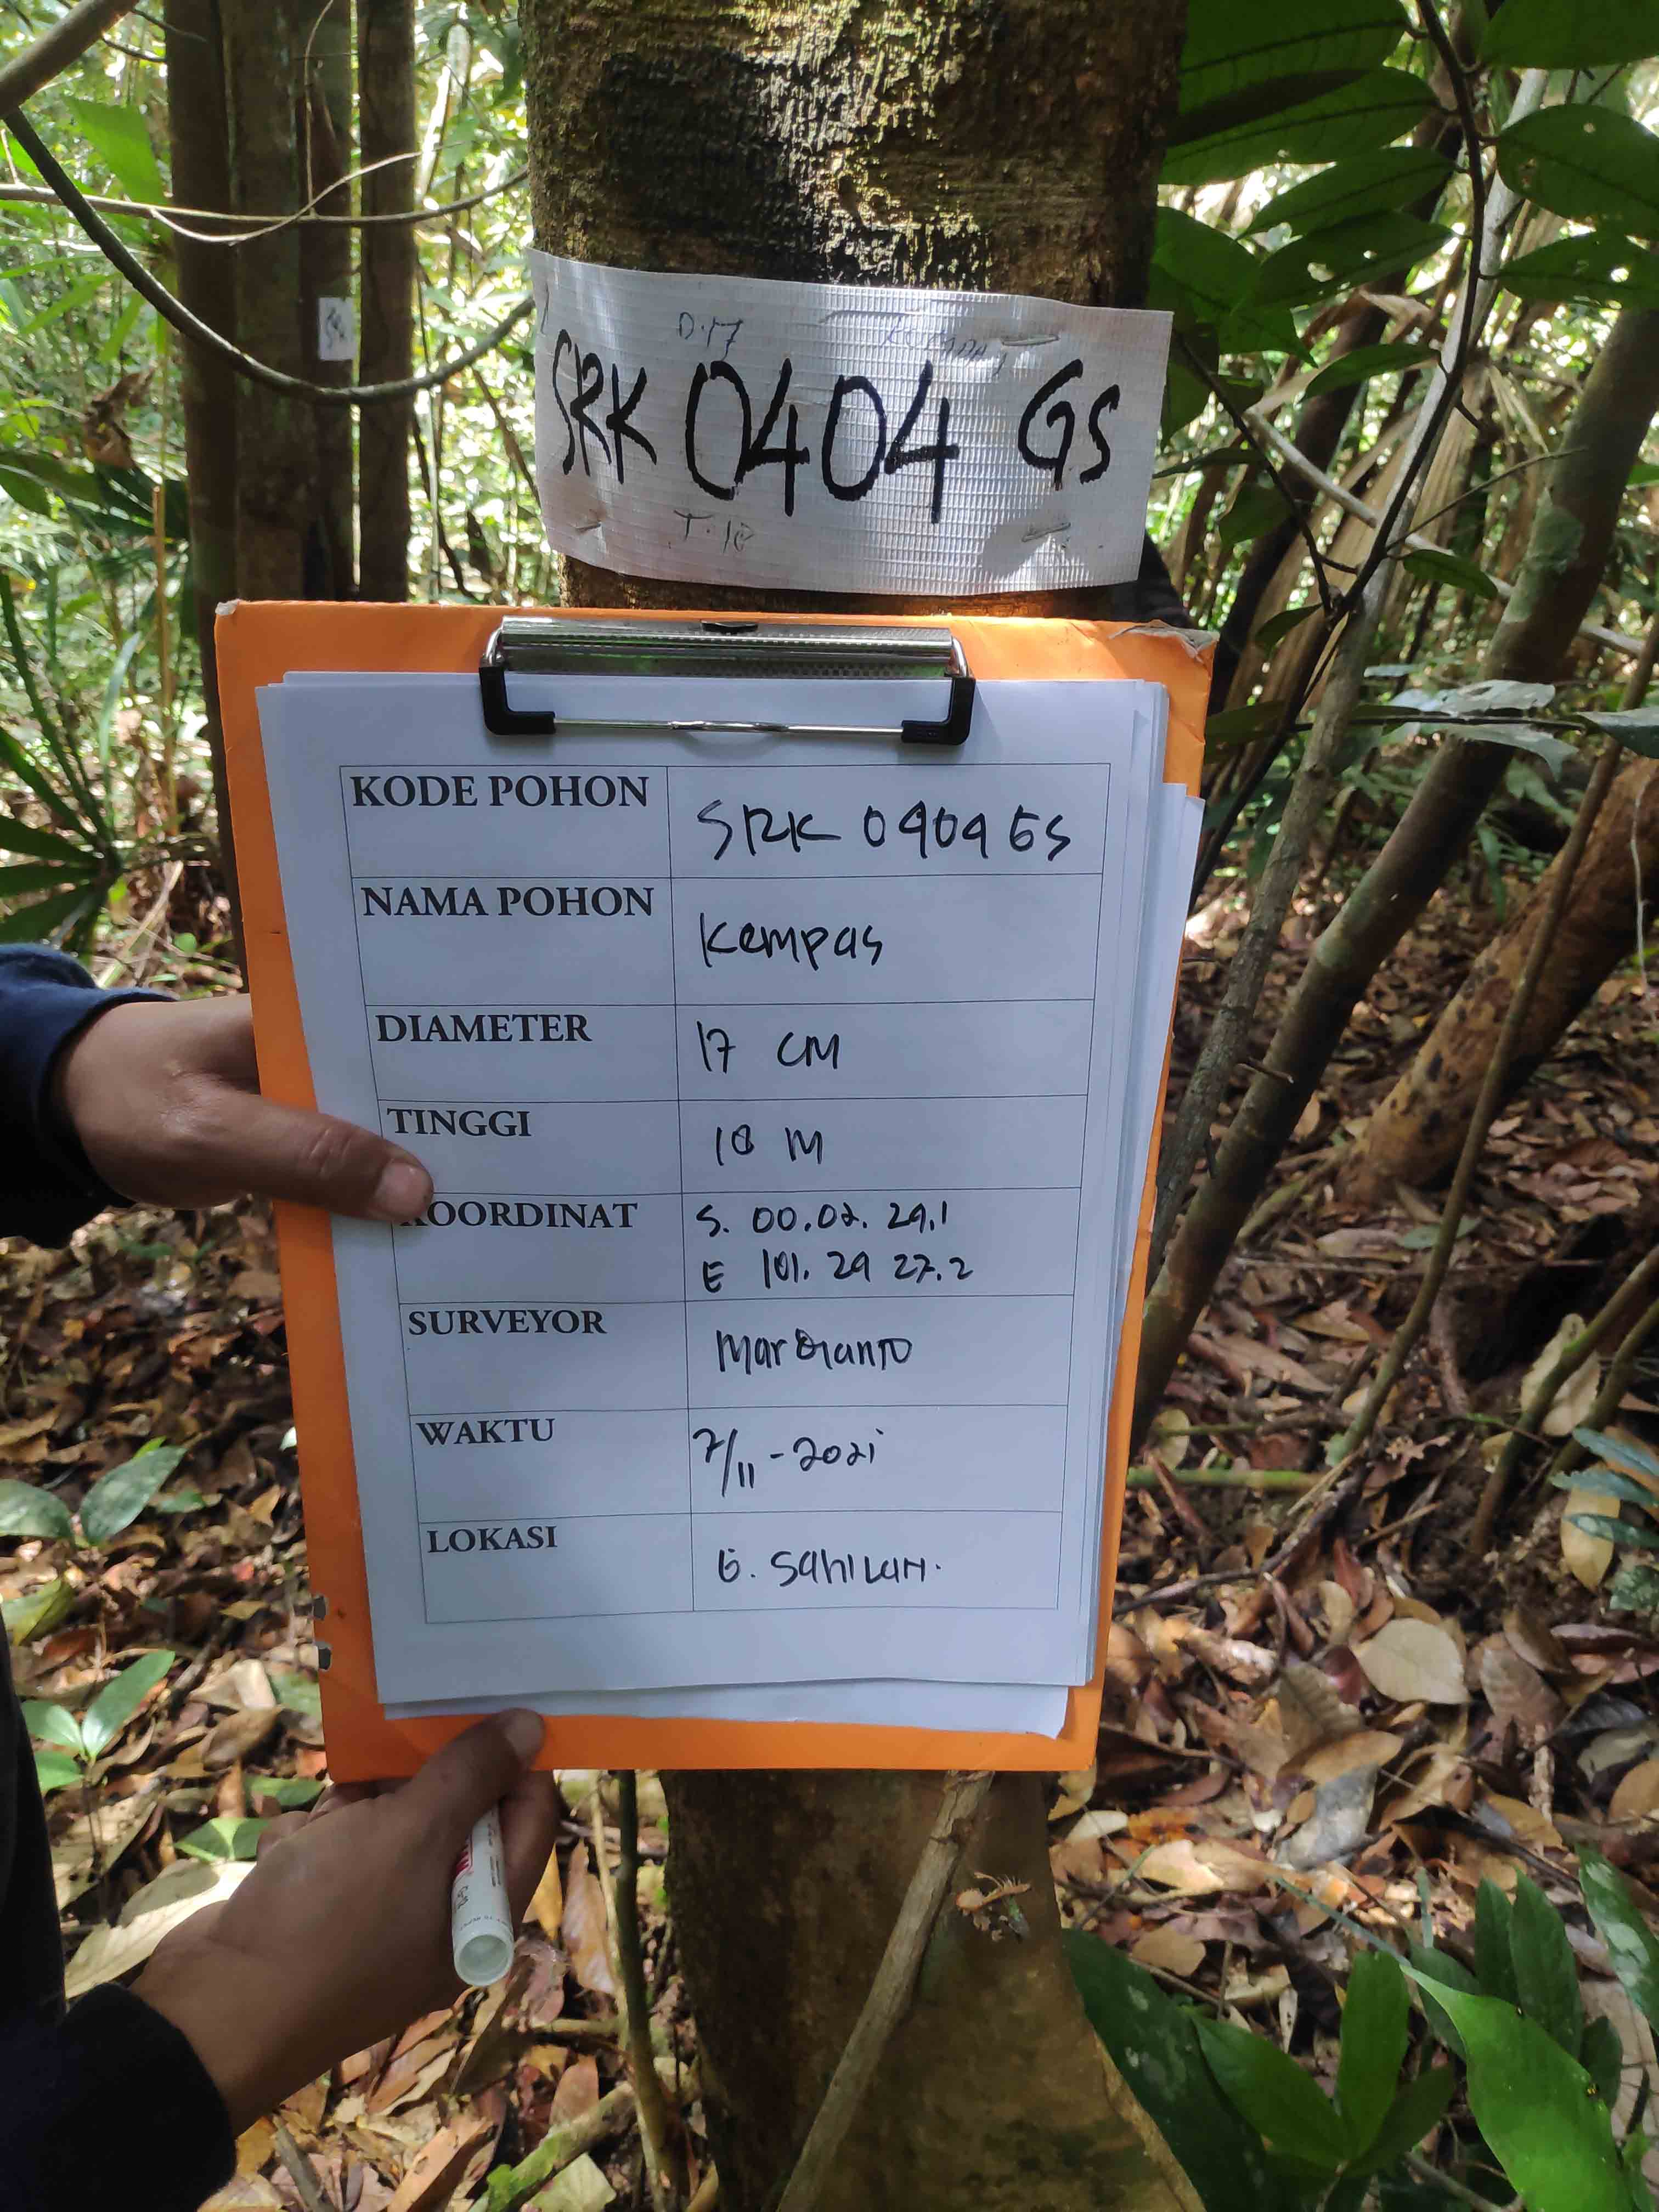 D.17
SRK 0404 GS
T.18
KODE POHON SRK 0404 GS
NAMA POHON Kempas
DIAMETER 17 CM
TINGGI 18 M
KOORDINAT S. 00.02. 29.1
E 101. 29 27.2
SURVEYOR Mardianto
WAKTU 7/11-2021
LOKASI G. Sahilan.